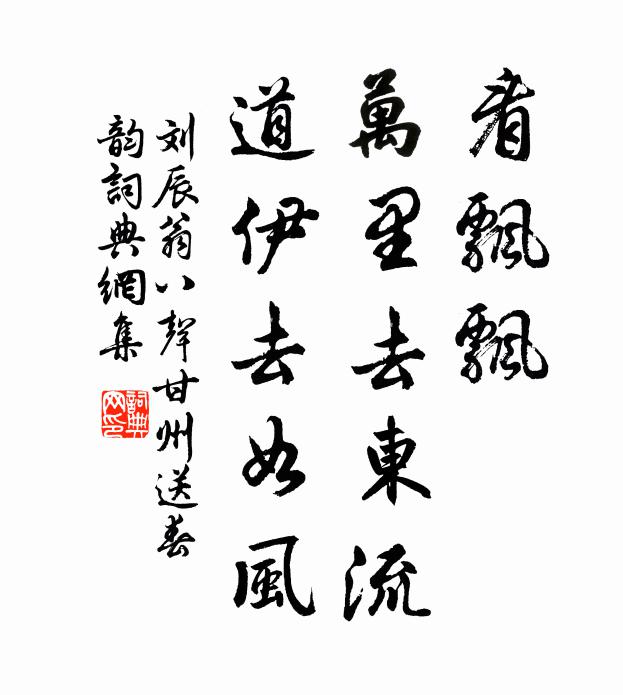 看飄飄
萬里去東流
道伊去如風
刘辰翁八聲甘州送春
韵詞典網集
詞典网印